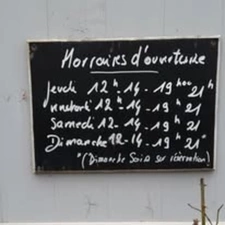 Horraires d'ouverture
Jeudi 12h 14 - 19h00 21h
12h 14 - 19 21
Samedi 12 - 14 - 19 21
Dimanche 12 - 14 - 19 21*
*(Dimanche Soir sur réservation)